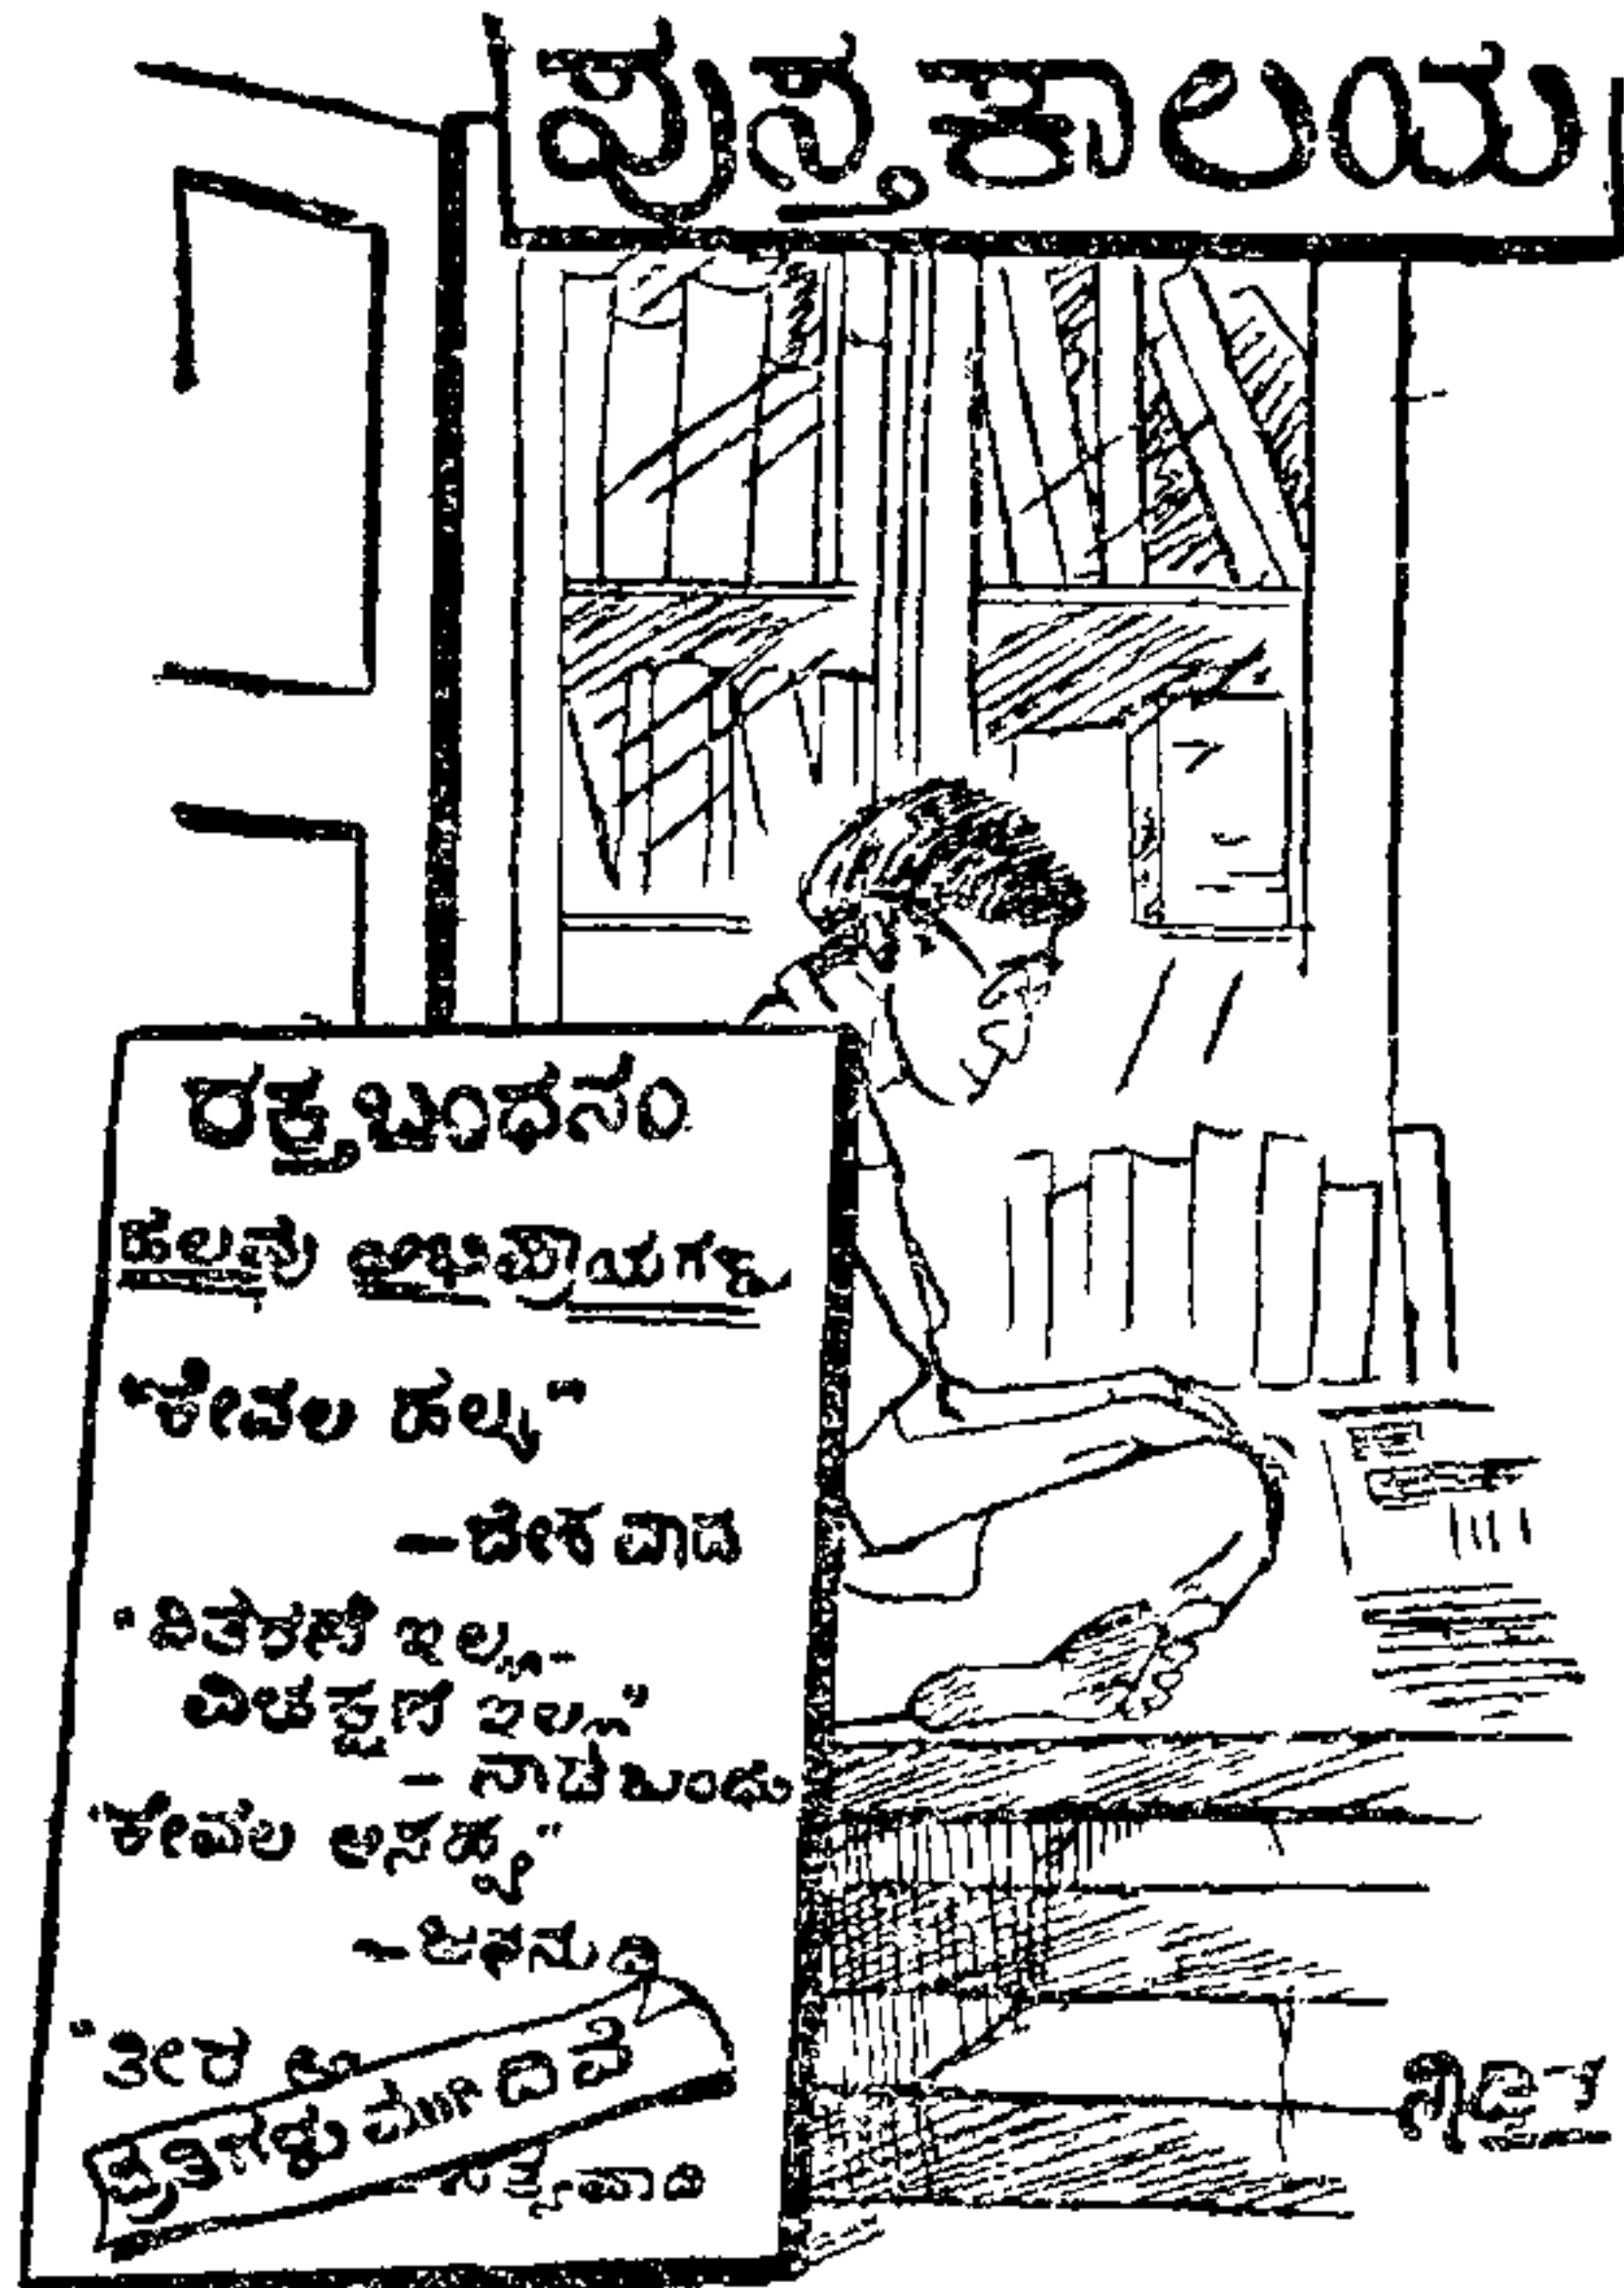 ಪುಸ್ತಕಾಲಯ
ರಕ್ತಬಂಧನಂ
ಹಲವು ಅಭಿಪ್ರಾಯಗಳು
"ಕೇವಲ ಹಲ್ಕ"
—ದೇಶವಾಡ
"ವಿತರಣೆ ಇಲ್ಲ-
ವಿಚಕ್ಷಣೆ ಇಲ್ಲ"
- ನಾಡಬಂಧು
"ಕೇವಲ ಅಸಹ್ಯ"
—ಜನನುಡಿ
"ತೀರ ಅ
ಪ್ರತಿಗಳು ಮುಗಿದಿವೆ
-ಸತ್ಯವಾದಿ